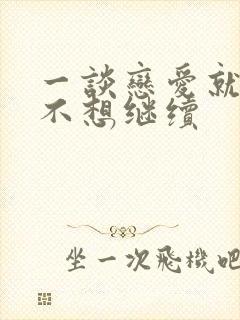 一談戀愛就
不想继续
坐一次飛機吧